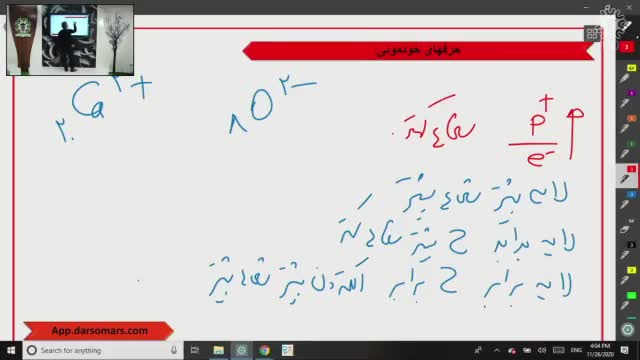 حرفهای خودمونی
₂₀Ca²⁺
₈O²⁻
p⁺ / e⁻ ↑ شعاع کمتر
لایه بیشتر شعاع بیشتر
لایه برابر p بیشتر شعاع کمتر
لایه برابر p برابر الکترون بیشتر شعاع بیشتر
App.darsomars.com
Type here to search
4:04 PM
11/26/2020